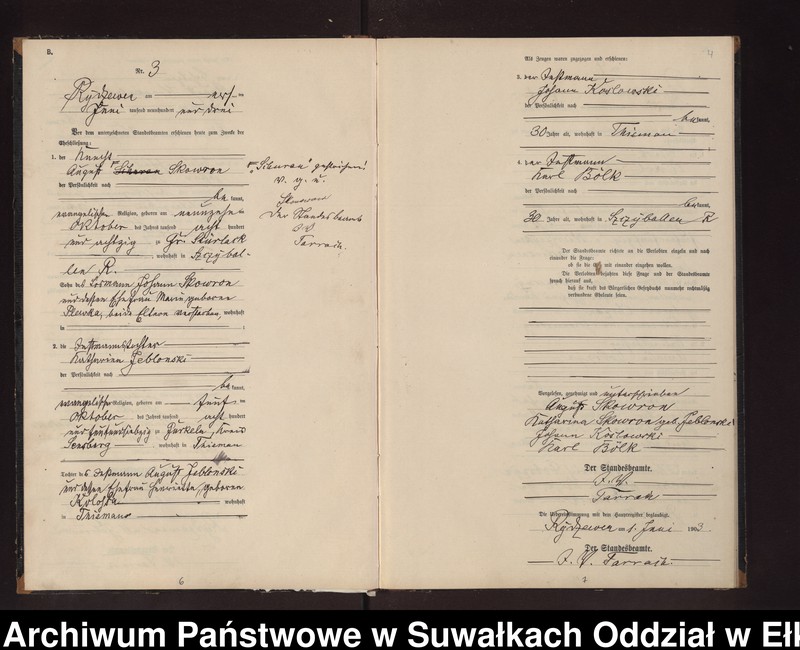 B.
Nr. 3
Rydzewen am ersten
Juni tausend neunhundert und drei
Vor dem unterzeichneten Standesbeamten erschienen heute zum Zwecke der
Eheschließung:
1. der Knecht
August Skowron
der Persönlichkeit nach
be kannt,
evangelischer Religion, geboren am neunzehn ten
Oktober des Jahres tausend acht hundert
und achtzig zu Gr. Stürlack
, wohnhaft in Szczybal-
len R.
Sohn des Losmann Johann Skowron
und dessen Ehefrau Marie geboren
beide Eltern verstorben, wohnhaft
in
"gestrichen!
v. g. u.
Skowron
Der Standesbeamte
Tarrach.
2. die Instmannstochter
Katharina Jeblonski
der Persönlichkeit nach
be kannt,
evangelischer Religion, geboren am fünf ten
Oktober des Jahres tausend acht hundert
und fünfundsiebzig zu Kreis
Sensburg, wohnhaft in Thiemau
Tochter des Instmann August Jeblonski
und dessen Ehefrau Henriette, geboren
wohnhaft
in Thiemau
6
Als Zeugen waren zugezogen und erschienen:
3. der Instmann
Johann Koslowski
der Persönlichkeit nach
be kannt,
30 Jahre alt, wohnhaft in Thiemau
4. der Instmann
Karl Bölk
der Persönlichkeit nach
be kannt,
30 Jahre alt, wohnhaft in Szczyballen R
Der Standesbeamte richtete an die Verlobten einzeln und nach
einander die Frage:
ob sie die Ehe mit einander eingehen wollen.
Die Verlobten bejahten diese Frage und der Standesbeamte
sprach hierauf aus,
daß sie kraft des Bürgerlichen Gesetzbuchs nunmehr rechtmäßig
verbundene Eheleute seien.
Vorgelesen, genehmigt und unterschrieben
August Skowron
Katharina Skowron geb. Jeblonski
Johann Koslowski
Karl Bölk
Der Standesbeamte.
J. V.
Tarrach
Die Übereinstimmung mit dem Hauptregister beglaubigt.
Rydzewen am 1. Juni 1903.
Der Standesbeamte.
J. V. Tarrach.
7
Archiwum Państwowe w Suwałkach Oddział w Eł